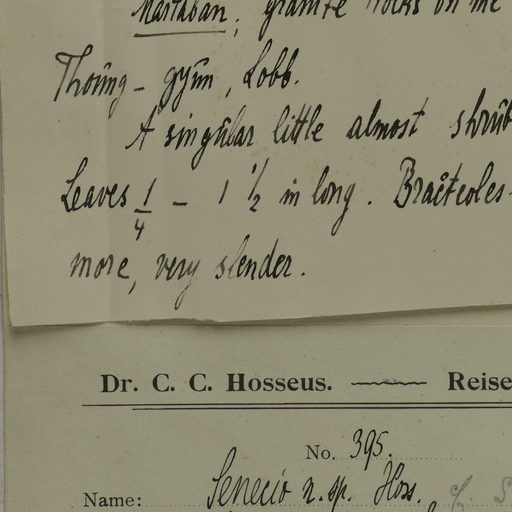 Martaban; granite rocks on the
Thoung-gyun, Lobb.
A singular little almost shrub
Leaves 1/4 – 1 1/2 in long. Bracteoles
more, very slender.
Dr. C. C. Hosseus. Reise
No. 395.
Name: Senecio n. sp. Hoss. cf. S